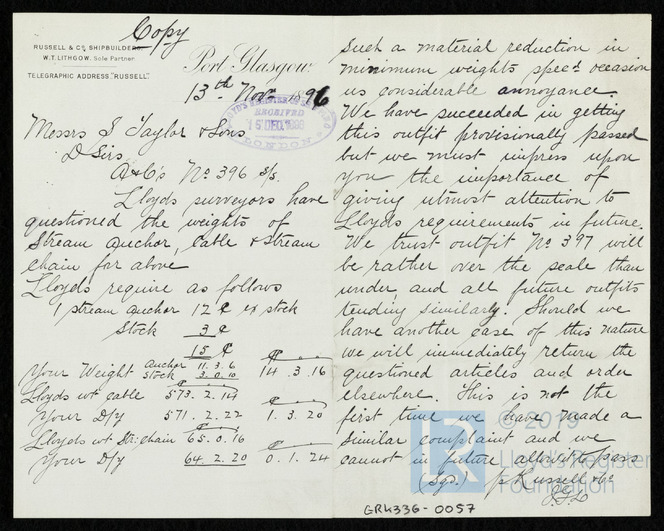 Copy
RUSSELL & Co. SHIPBUILDERS.
W. T. LITHGOW, Sole Partner.
TELEGRAPHIC ADDRESS, "RUSSELL".
Port Glasgow
13th Nov. 1896
LLOYD'S REGISTER OF SHIPPING
RECEIVED
15 DEC. 1896
LONDON
Messrs S Taylor & Sons
D Sirs
A & Co's No. 396 s/s.
Lloyds surveyors have
questioned the weights of
stream anchor, cable & stream
chain for above
Lloyds require as follows
1 stream anchor 12 ex stock
Stock 3
15
Your Weight anchor 11. 3. 6
stock 3. 0. 10 14. 3. 16
Lloyds wt cable 573. 2. 14
Your D/y 571. 2. 22 1. 3. 20
Lloyds wt Str: chain 65. 0. 16
Your D/y 64. 2. 20 0. 1. 24
Such a material reduction in
minimum weights specd. occasion
us considerable annoyance.
We have succeeded in getting
this outfit provisionally passed
but we must impress upon
you the importance of
giving utmost attention to
Lloyds requirements in future.
We trust outfit No. 397 will
be rather over the scale than
under and all future outfits
tending similarly. Should we
have another case of this nature
we will immediately return the
questioned articles and order
elsewhere. This is not the
first time we have made a
similar complaint and we
cannot in future allow it to pass
(Sgd.) p Russell & Co
© 2019
Lloyd's Register
Foundation
GRK336-0057